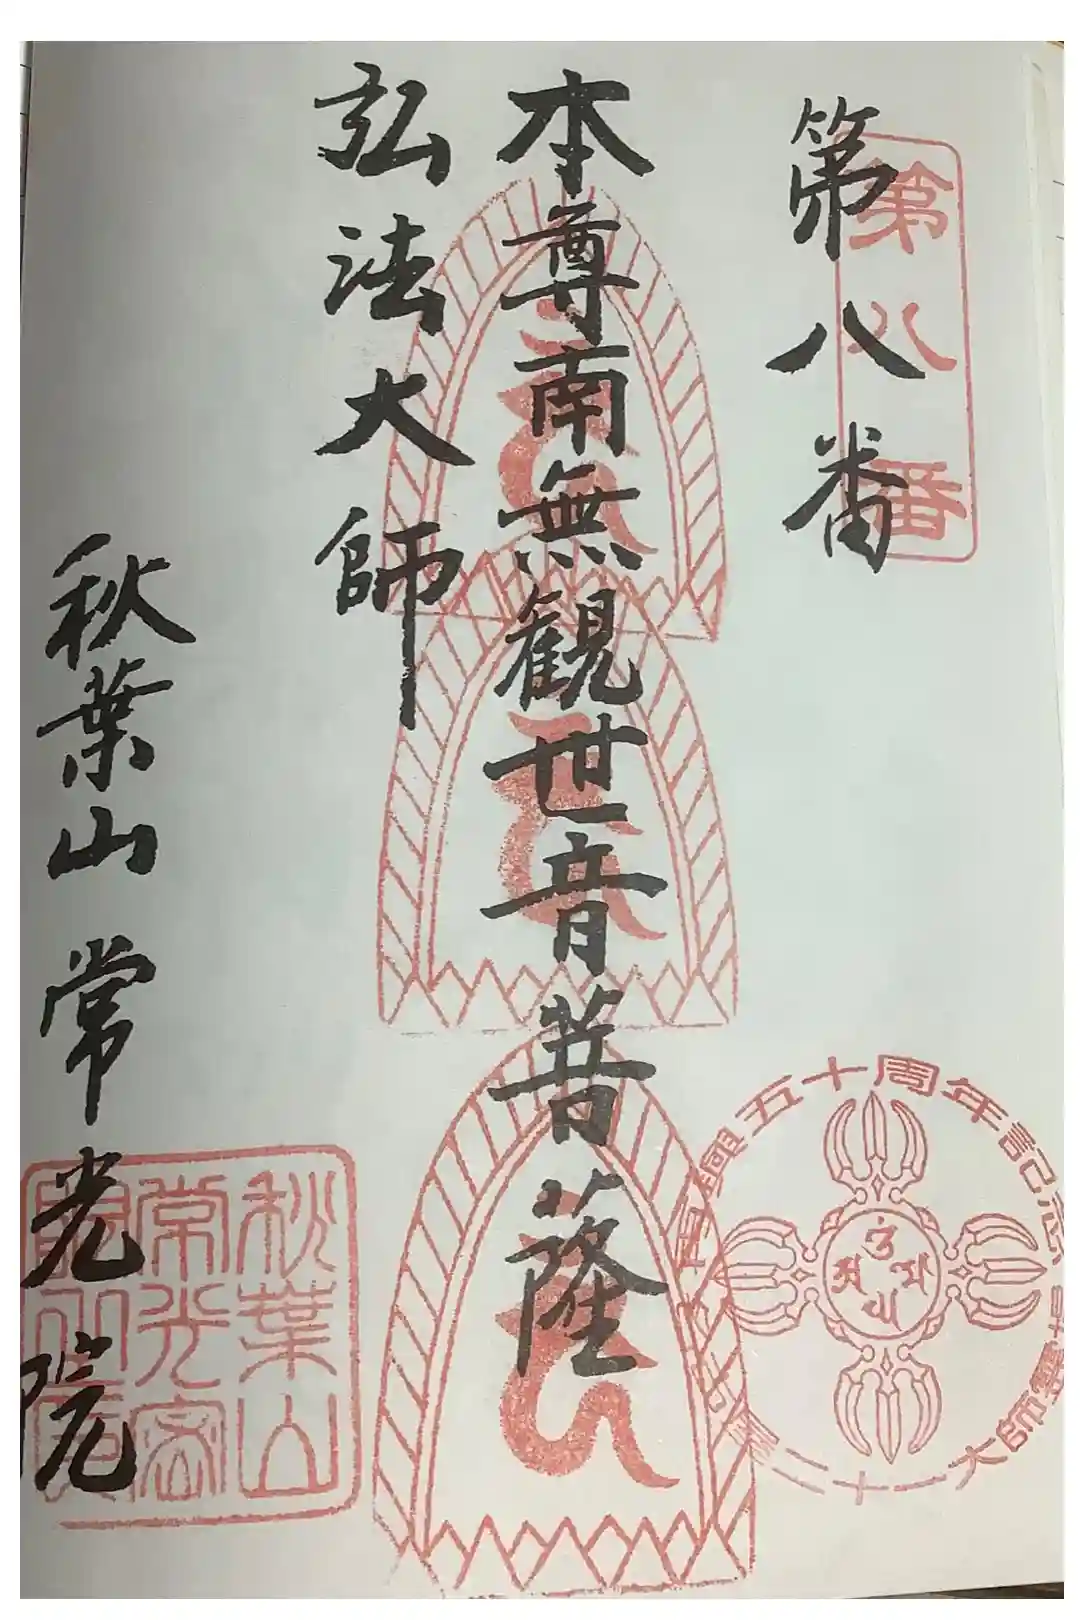 第八番
第八番
本尊南無観世音菩薩
弘法大師
秋葉山常光院
秋葉山
常光密
興五十周年記念
大師霊場
二十一